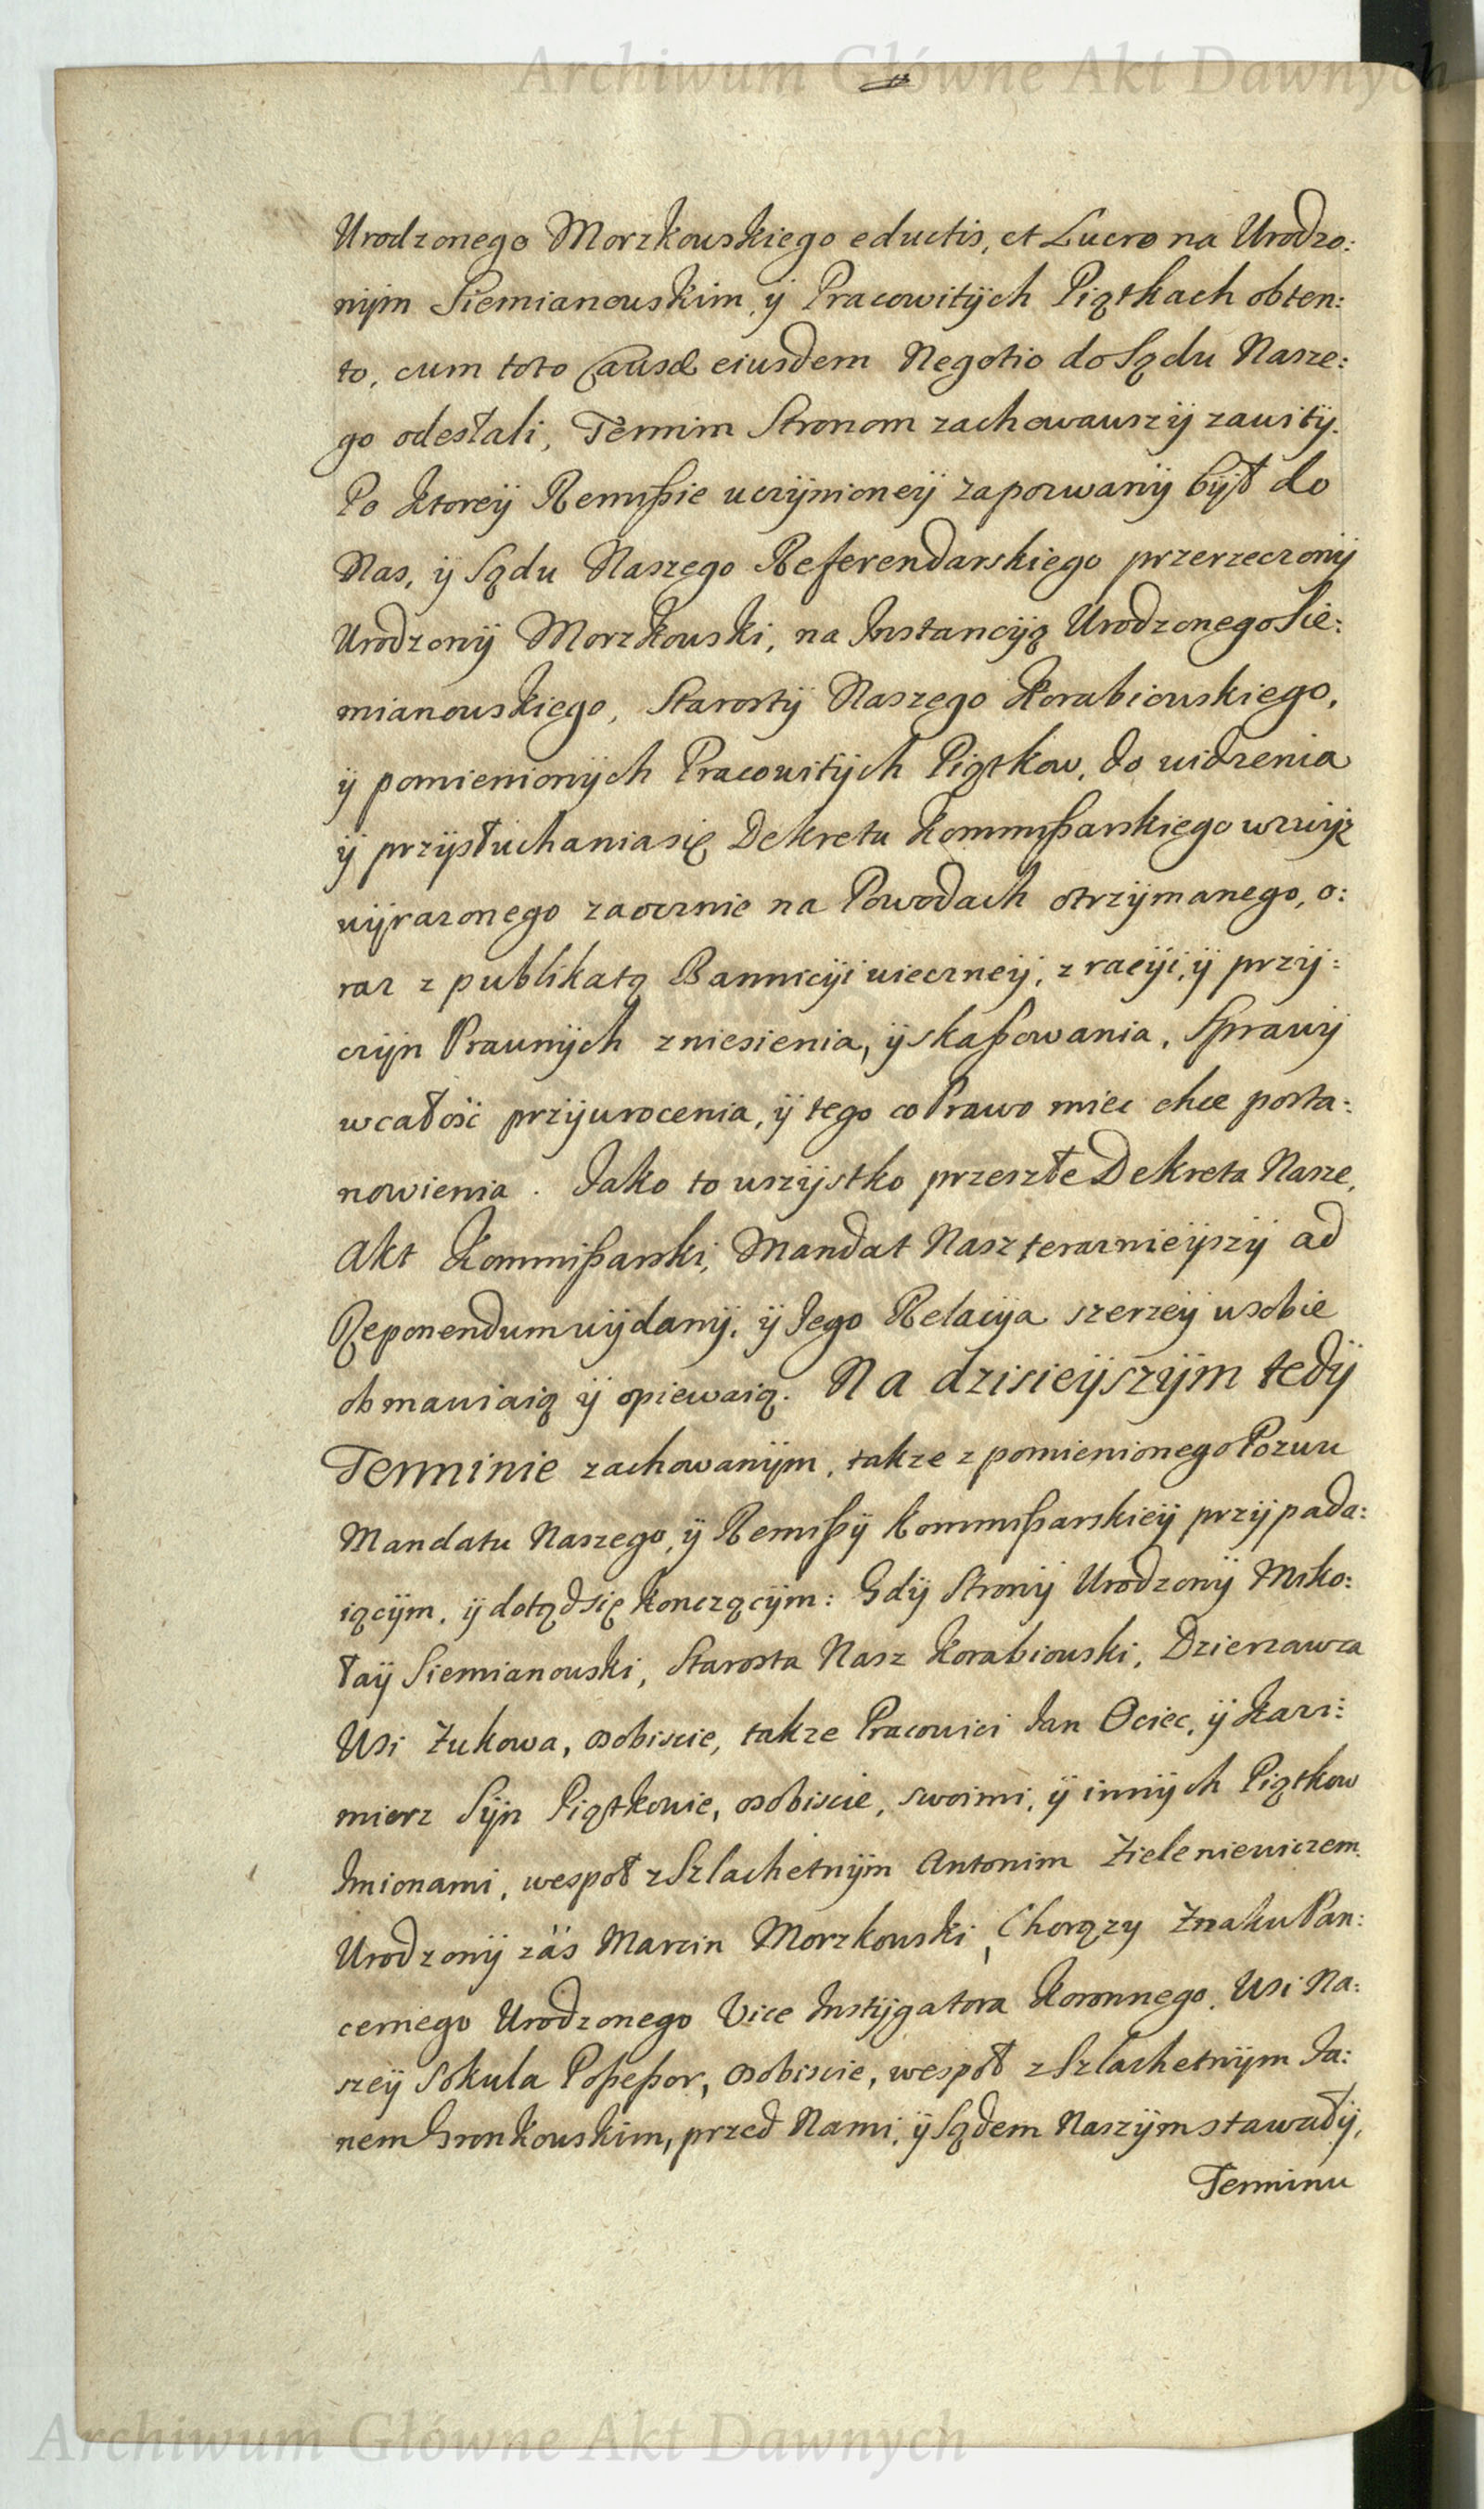 Archiwum Główne Akt Dawnych
Urodzonego Morzkowskiego eductis, et Lucro na Urodzo:
nÿm Siemianowskim, ÿ PracowitÿchPiątkach obten:
to, cum toto Causæ eiusdem Negotio do Sądu Nasze:
go odesłali, Termin Stronom zachowawszÿ zawitÿ.
Po ktoreÿ Remißie uczÿnioneÿ zapozwanÿ bÿł do
Nas, ÿ Sądu Naszego Referendarskiego przerzeczonÿ
Urodzonÿ Morzkowski, na Instancÿą Urodzonego Sie:
mianowskiego, Starostÿ Naszego Korabiowskiego,
ÿ pomienionÿch Pracowitÿch Piątkow, do widzenia
ÿ przÿsłuchania się Dekretu Kommißarskiego wzwÿż
wÿrazonego zaocznie na Powodach otrzÿmanego, o:
raz z publikatą Bannicÿi wieczneÿ, z racÿi, ÿ przÿ:
czÿn Prawnÿch zniesienia, ÿ skaßowania, Sprawÿ
w całość przÿwrocenia, ÿ tego co Prawo miec chce posta:
nowienia. Jako to wszÿstko przeszłe Dekreta Nasze,
Akt Kommißarski, Mandat Nasz terazniejszÿ ad
Reponendum wÿdanÿ, ÿ Jego Relacÿa szerzeÿ w sobie
obmawiaią ÿ opiewaią. Na dzisieÿszÿm tedÿ
Terminie zachowanÿm, takze z pomienionego Pozwu
Mandatu Naszego, ÿ Remißÿ Kommißarskieÿ przÿpada:
iącÿm, ÿ dotąd się konczącÿm: Gdÿ Stronÿ Urodzonÿ Miko:
łaÿ Siemianowski, Starosta Nasz Korabiowski, Dzierzawca
Wsi Żukowa, osobiscie, takze Pracowici Jan Ociec, ÿ Kazi:
mierz Sÿn Piątkowie, osobiscie, swoimi, ÿ innÿch Piątkow
Imionami, wespoł z Szlachetnÿm Antonim Zieleniewiczem.
Urodzonÿ zás Marcin Morzkowski, Chorązy Znaku Pan:
cernego Urodzonego Vice Instÿgatora Koronnego, Wsi Na:
szeÿ Sokula Poßeßor, osobiscie, wespoł z Szlachetnÿm Ja:
nem Gronkowskim, przed Nami, ÿ Sądem Naszÿm stawałÿ,
Terminu
Archiwum Główne Akt Dawnych